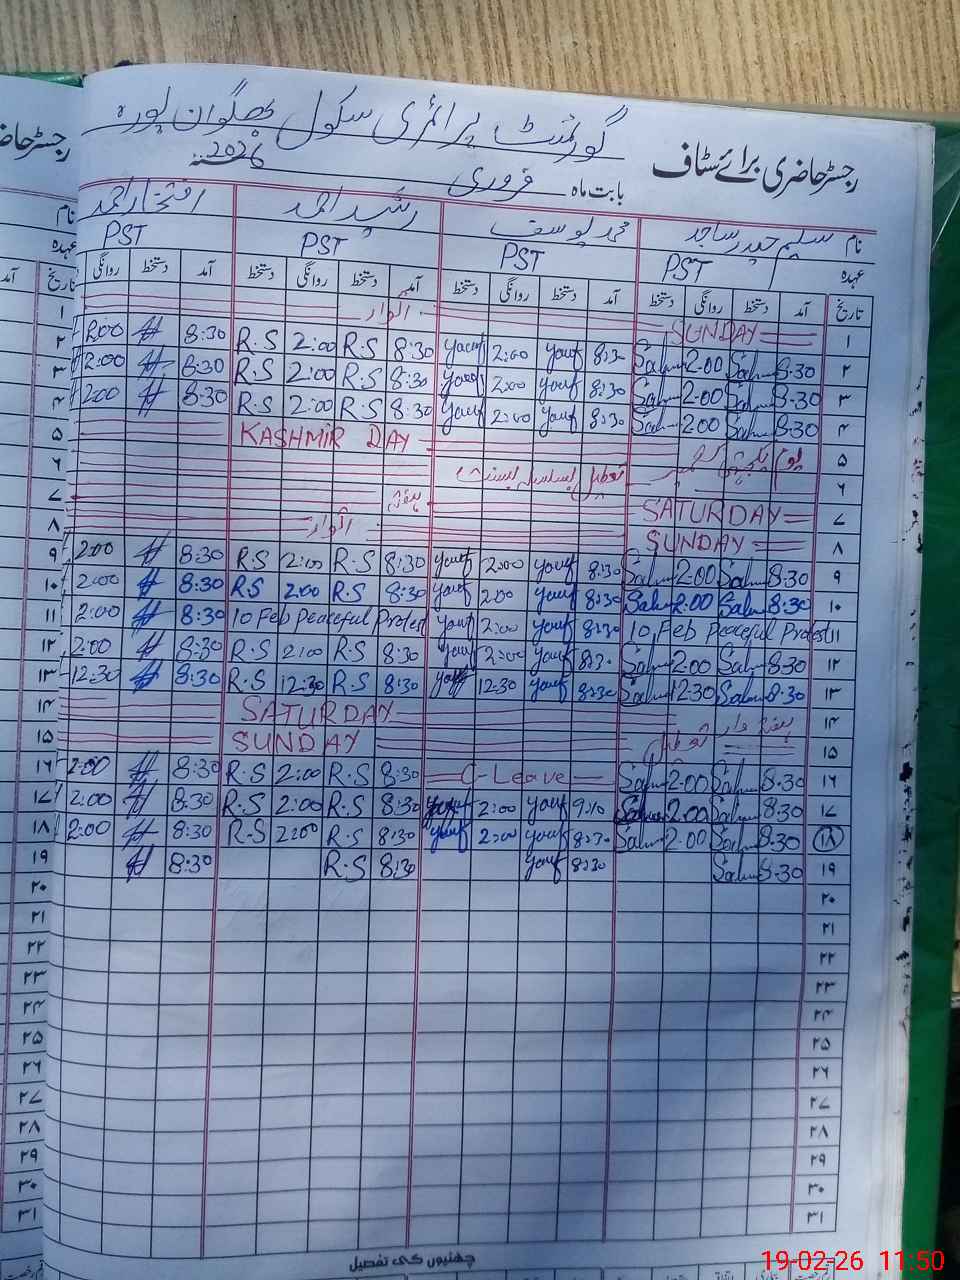 گورنمنٹ پرائمری سکول بھگوان پورہ
رجسٹر حاضری برائے سٹاف
بابت ماہ فروری 2026
نام سلیم حیدر ساجد محمد یوسف رشید احمد افتخار احمد
عہدہ PST PST PST PST
تاریخ آمد دستخط روانگی دستخط آمد دستخط روانگی دستخط آمد دستخط روانگی دستخط آمد دستخط روانگی
۱ SUNDAY اتوار
۲ 8:30 Salm 2:00 Salm 8:30 yousf 2:00 yousf 8:30 R.S 2:00 R.S 8:30 2:00
۳ 8:30 Salm 2:00 Salm 8:30 yousf 2:00 yousf 8:30 R.S 2:00 R.S 8:30 2:00
۴ 8:30 Salm 2:00 Salm 8:30 yousf 2:00 yousf 8:30 R.S 2:00 R.S 8:30 2:00
۵ یوم یکجہتی کشمیر KASHMIR DAY
۶ تعطیل بسلسلہ بسنت
۷ SATURDAY ہفتہ
۸ SUNDAY اتوار
۹ 8:30 Salm 2:00 Salm 8:30 yousf 2:00 yousf 8:30 R.S 2:00 R.S 8:30 2:00
۱۰ 8:30 Salm 2:00 Salm 8:30 yousf 2:00 yousf 8:30 R.S 2:00 R.S 8:30 2:00
۱۱ 10 Feb Peaceful Protest 8:30 yousf 2:00 yousf 10 Feb Peaceful Protest 8:30 2:00
۱۲ 8:30 Salm 2:00 Salm 8:30 yousf 2:00 yousf 8:30 R.S 2:00 R.S 8:30 2:00
۱۳ 8:30 Salm 12:30 Salm 8:30 yousf 12:30 yousf 8:30 R.S 12:30 R.S 8:30 12:30
۱۴ ہفتہ وار SATURDAY
۱۵ تعطیل SUNDAY
۱۶ 8:30 Salm 2:00 Salm C-Leave 8:30 R.S 2:00 R.S 8:30 2:00
۱۷ 8:30 Salm 2:00 Salm 9:10 yousf 2:00 yousf 8:30 R.S 2:00 R.S 8:30 2:00
۱۸ 8:30 Salm 2:00 Salm 8:30 yousf 2:00 yousf 8:30 R.S 2:00 R.S 8:30 2:00
۱۹ 8:30 Salm 8:30 yousf 8:30 R.S 8:30
۲۰
۲۱
۲۲
۲۳
۲۴
۲۵
۲۶
۲۷
۲۸
۲۹
۳۰
۳۱
چھٹیوں کی تفصیل
19-02-26 11:50